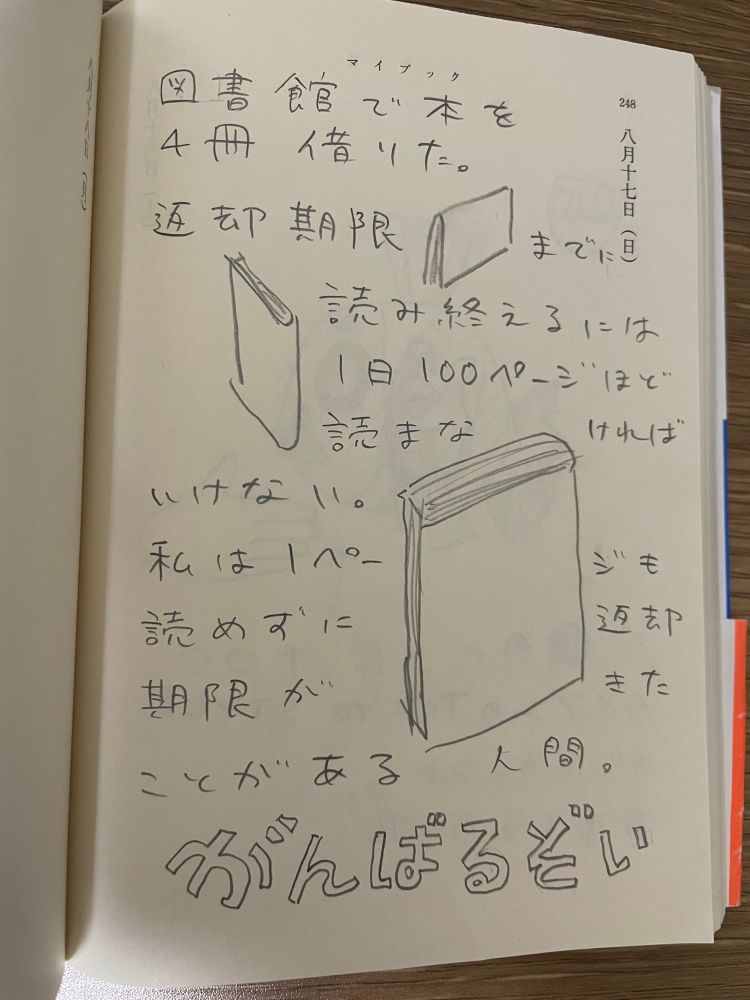 マイブック
248
八月十七日(日)
図書館で本を
4冊 借りた。
返却期限までに
読み終えるには
1日100ページほど
読まなければ
いけない。
私は1ページも
読めずに返却
期限がきた
ことがある人間。
がんばるぞい